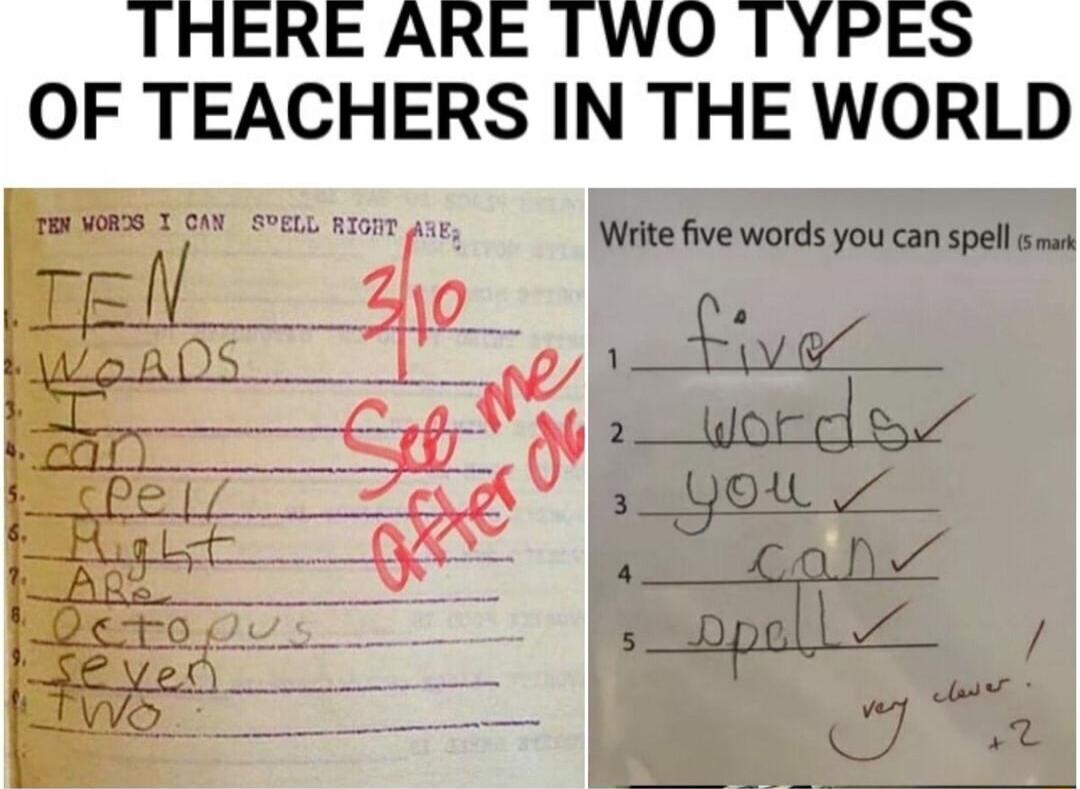 THERE ARE TWO TYPES
OF TEACHERS IN THE WORLD
TEN WORDS I CAN SPELL RIGHT ARE
3/10
1. TEN
2. WORDS
3. I
4. can
5. spell
6. Right
7. ARe
8. Octopus
9. seven
TWO
See me
after
Write five words you can spell (5 mark
1 five
2 words
3 you
4 can
5 spell
very clever!
+2